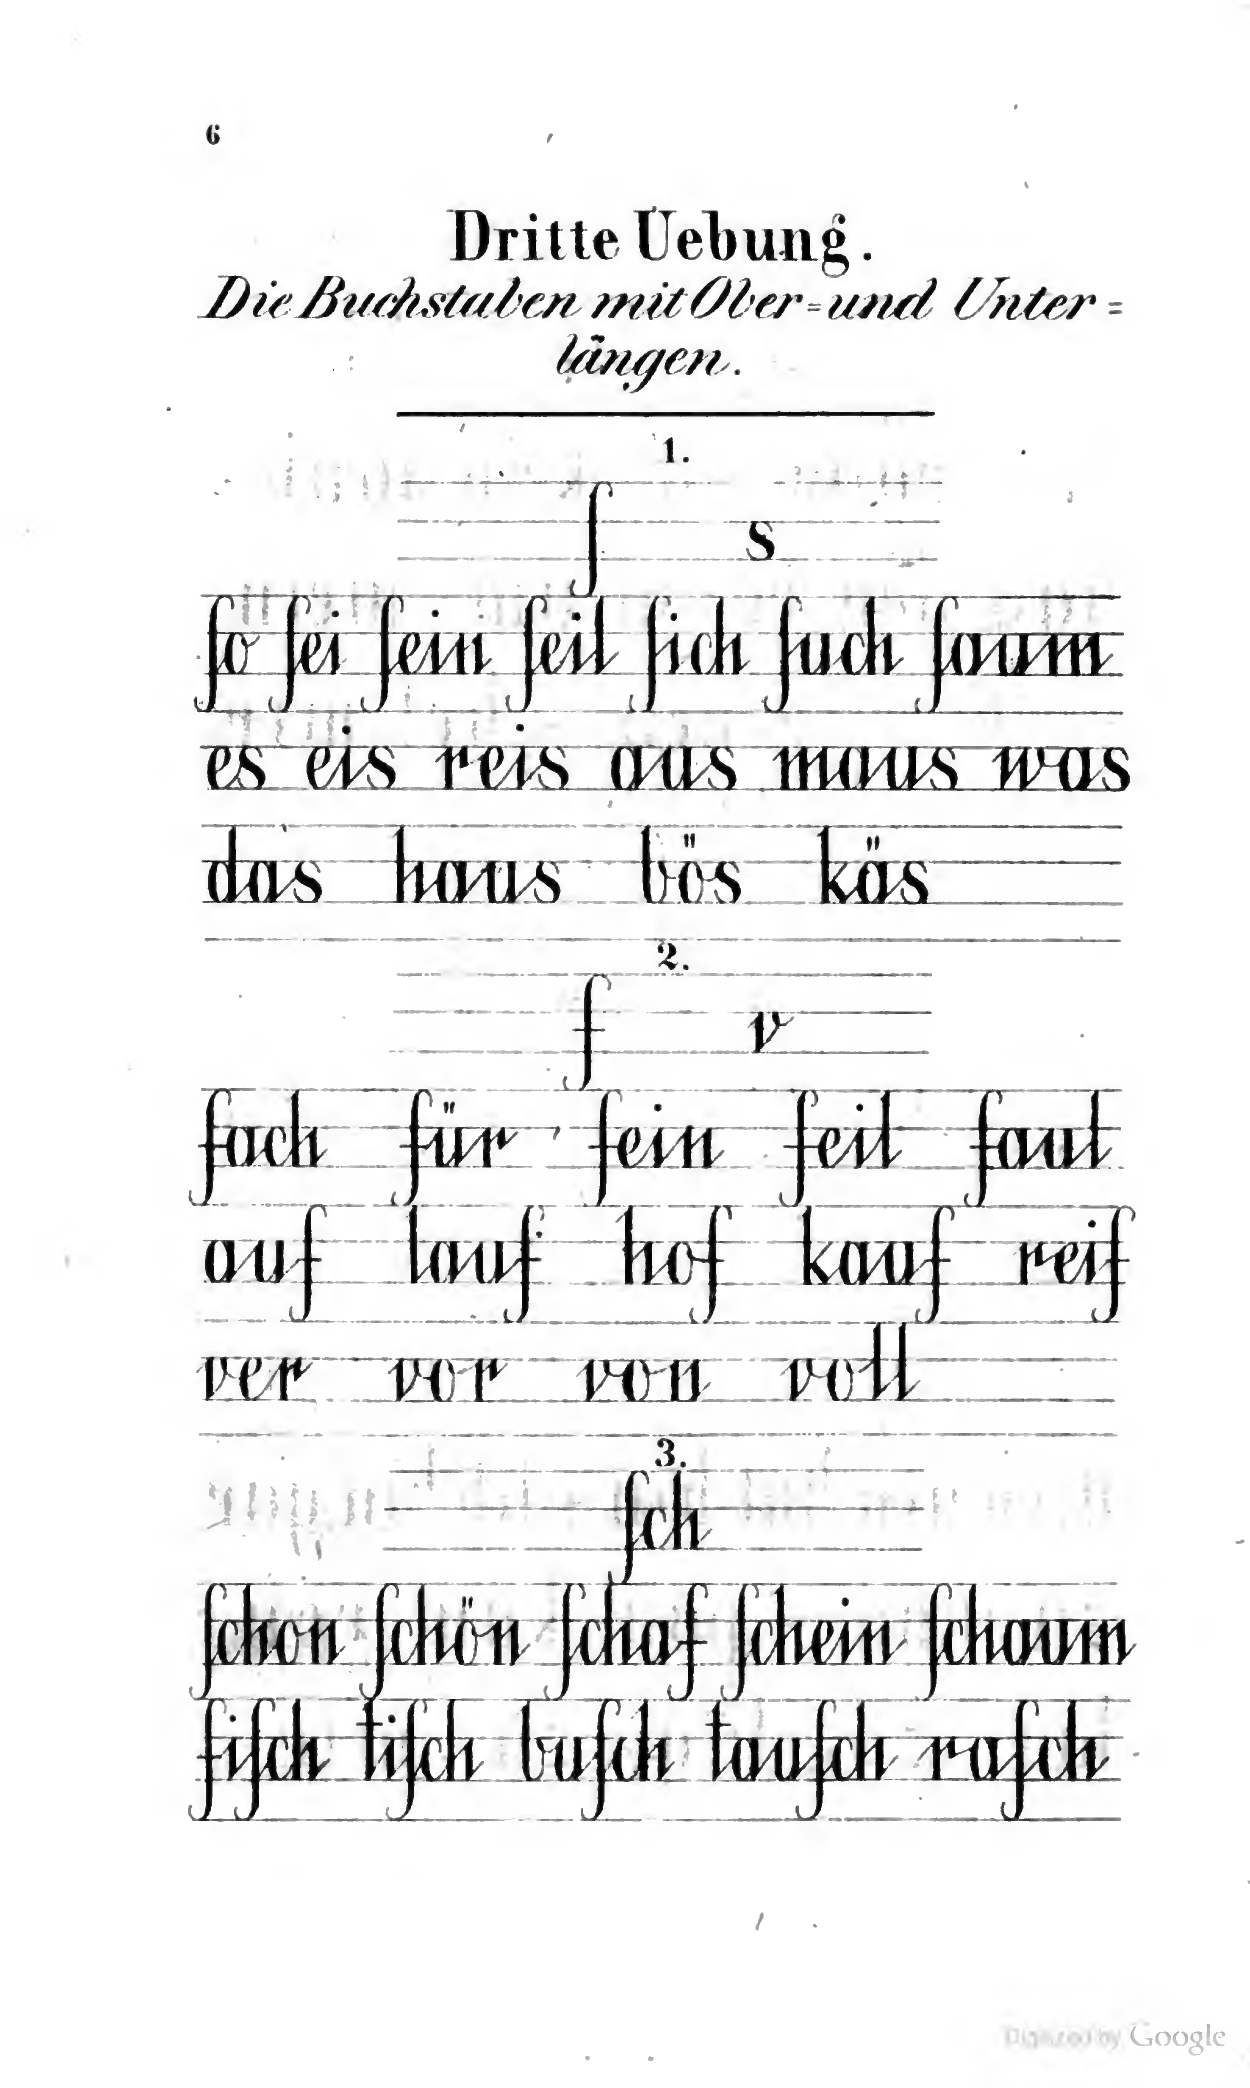 6
Dritte Uebung.
Die Buchstaben mit Ober=und Unter=
längen.
1.
ſ s
ſo ſei ſein ſeil ſich ſuch ſaum
es eis reis aus maus was
das haus bös käs
2.
f v
fach für fein feil faul
auf lauf hof kauf reif
ver vor von voll
3.
ſch
ſchon ſchön ſchaf ſchein ſchaum
fiſch tiſch buſch tauſch raſch
Digitized by Google